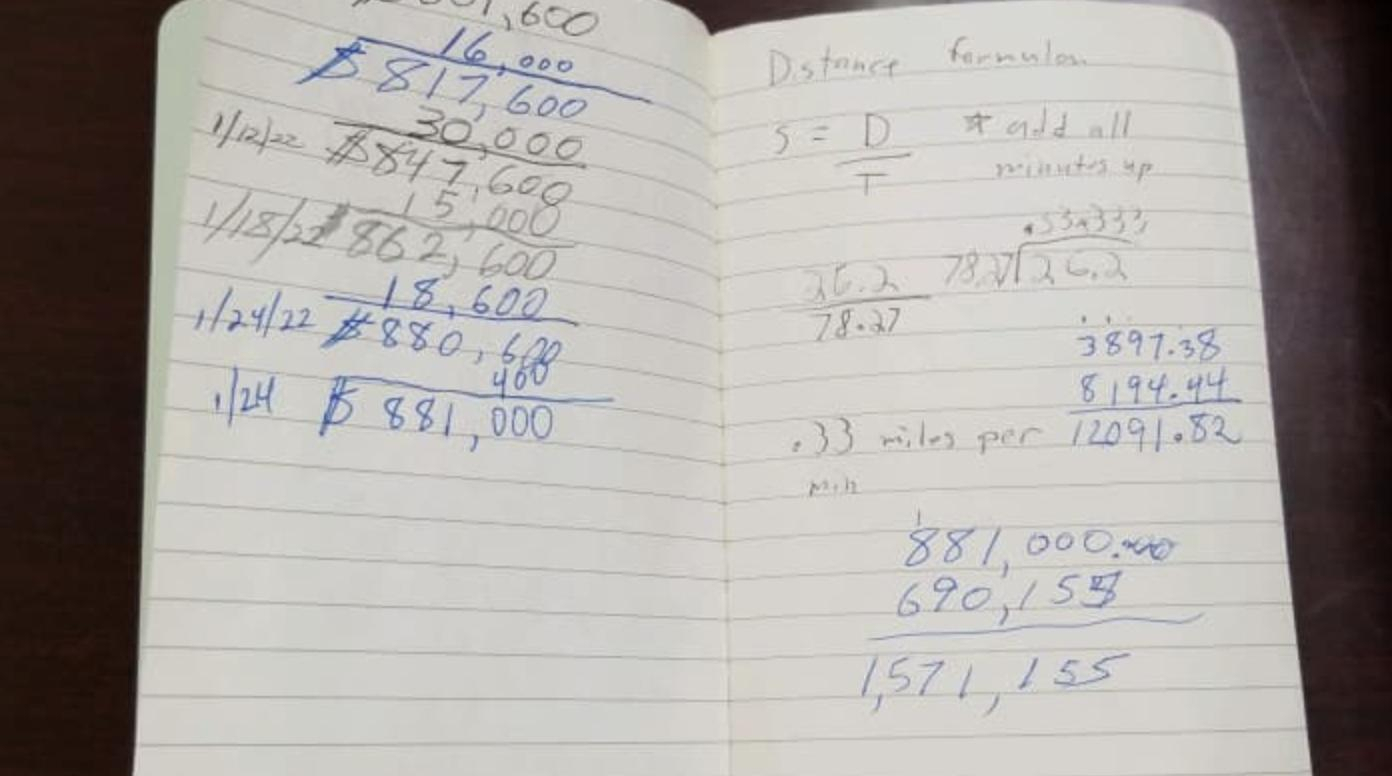 01,600
16,000
$817,600
30,000
1/12/22 $847,600
15,000
1/18/22 862,600
18,600
1/24/22 $880,600
400
1/24 $881,000
Distance formulas
S = D * add all
T minutes up
.53.333
26.2 78.27 26.2
78.27
3897.38
8194.44
.33 miles per 12091.82
min
1
881,000.00
690,155
1,571,155